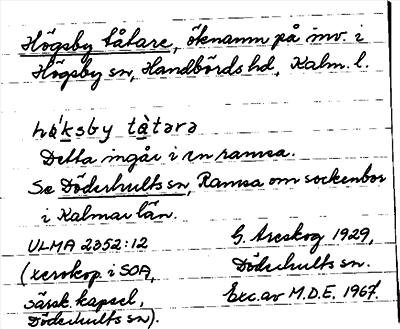 Högsby tåtare, öknamn på inv. i
Högsby sn, Handbörds hd, Kalm. l.
hǻksby tàtərə
Detta ingår i en ramsa.
Se Döderhults sn, Ramsa om sockenbor
i Kalmar län.
ULMA 2352:12
(xerokop. i SOA,
särsk. kapsel,
Döderhults sn).
G. Areskog 1929,
Döderhults sn.
Exc. av M.D.E. 1967.